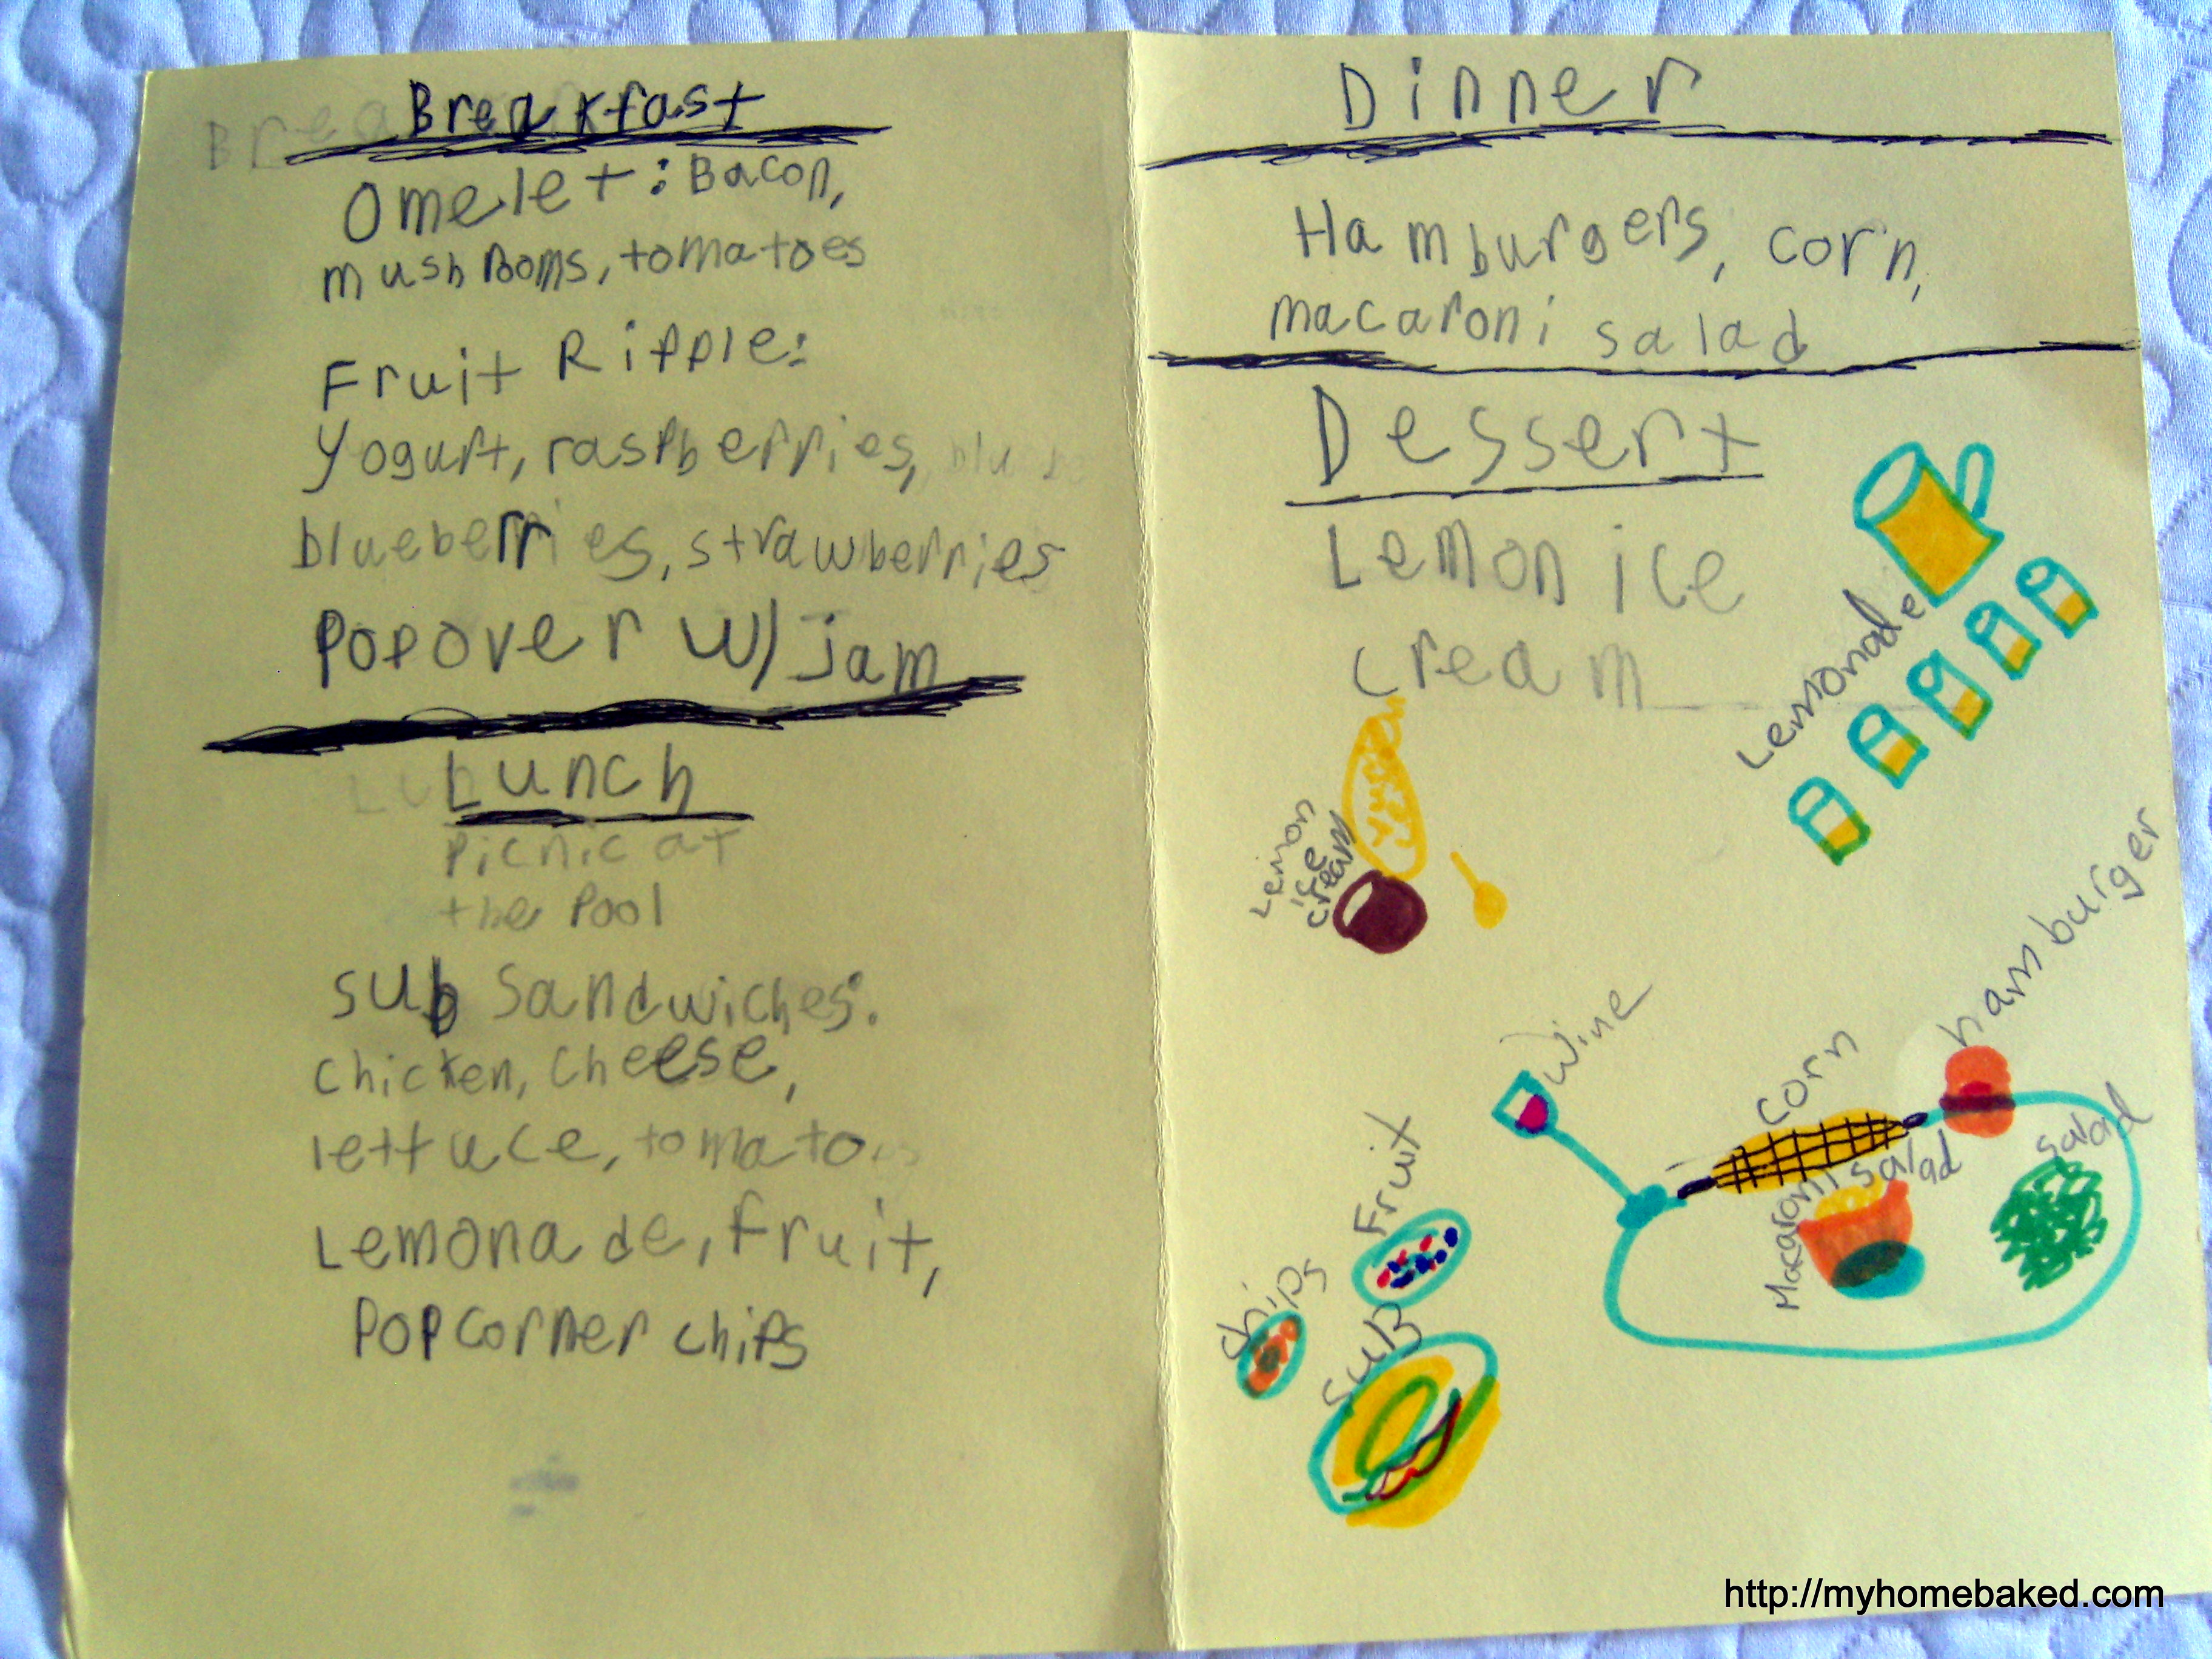 Breakfast
Omelet: Bacon,
mushRoms, tomatoes
Fruit Ripple:
Yogurt, raspberries,
blueberries, strawberries
Popover w/ Jam
Lunch
Picnic at
the Pool
Sub Sandwiches:
Chicken, Cheese,
lettuce, tomato
Lemonade, Fruit,
Popcorner chips
Dinner
Hamburgers, corn,
macaroni salad
Dessert
Lemon ice
cream
Lemonade
Lemon
ice
cream
Wine
Corn
hamburger
Macaroni salad
salad
Fruit
chips
SuB
http://myhomebaked.com